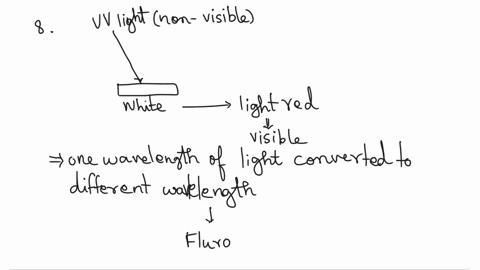 8. UV light (non-visible)
white → light red
↓
visible
⇒ one wavelength of light converted to
different wavelength
↓
Fluro